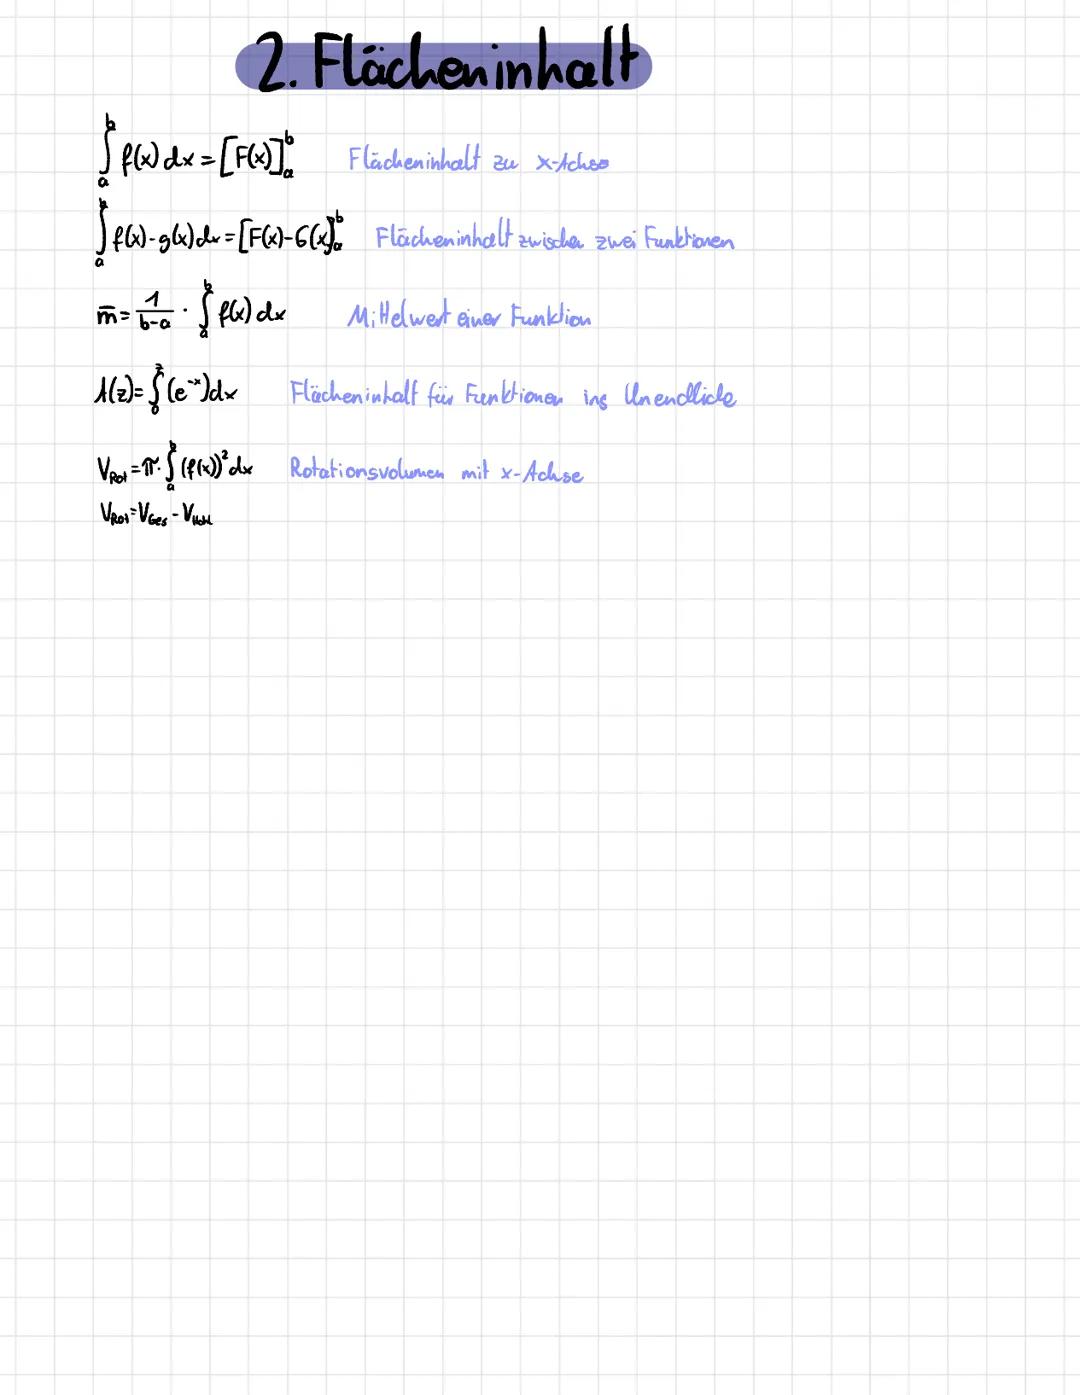 2. Flächeninhalt
∫_a^b f(x) dx = [F(x)]_a^b Flächeninhalt zu x-Achse
∫_a^b f(x)-g(x) dx = [F(x)-G(x)]_a^b Flächeninhalt zwischen zwei Funktionen
m̅ = 1/(b-a) · ∫_a^b f(x) dx Mittelwert einer Funktion
A(z) = ∫_0^z (e^-x) dx Flächeninhalt für Funktionen ins Unendliche
V_Rot = π · ∫_a^b (f(x))² dx Rotationsvolumen mit x-Achse
V_Rot = V_Ges - V_Hohl